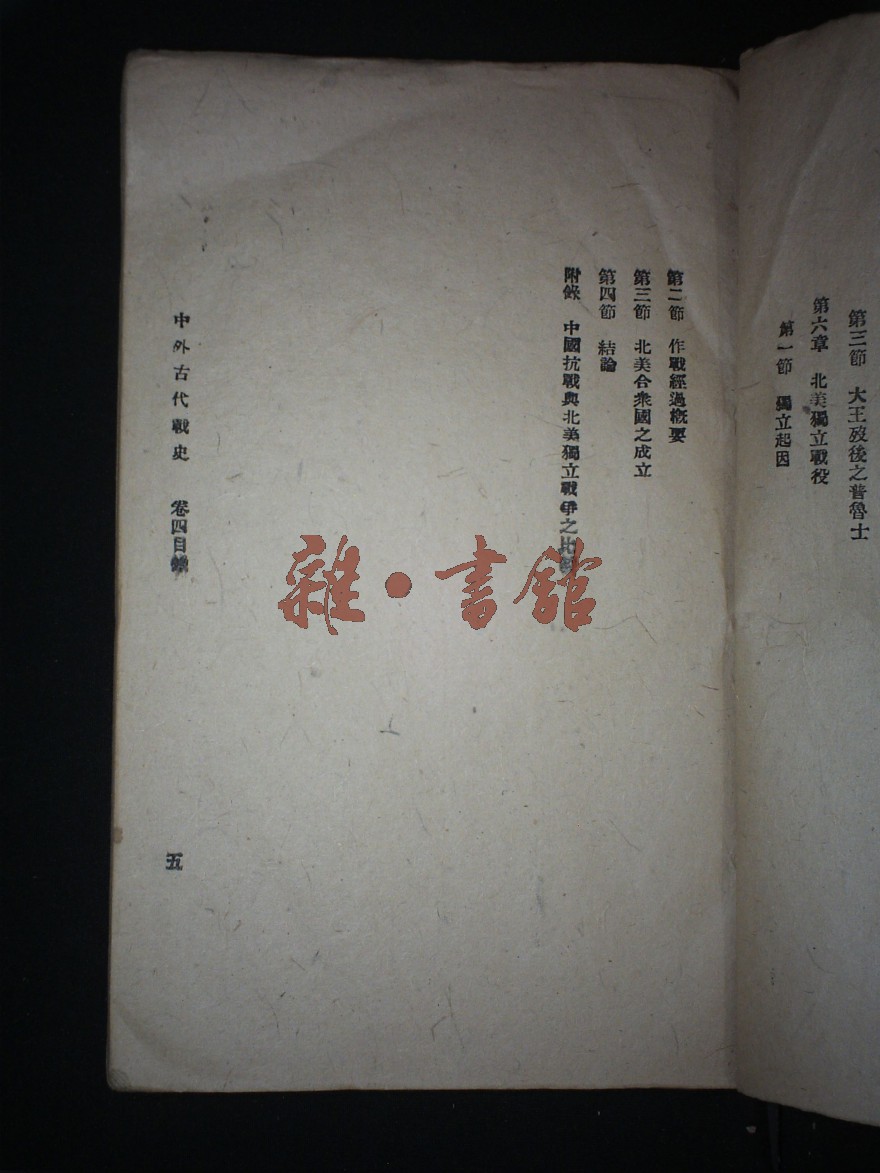 第三節 大王歿後之普魯士
第六章 北美獨立戰役
第一節 獨立起因
第二節 作戰經過概要
第三節 北美合衆國之成立
第四節 結論
附錄 中國抗戰與北美獨立戰爭之比
中外古代戰史 卷四目錄
五
雜·書館